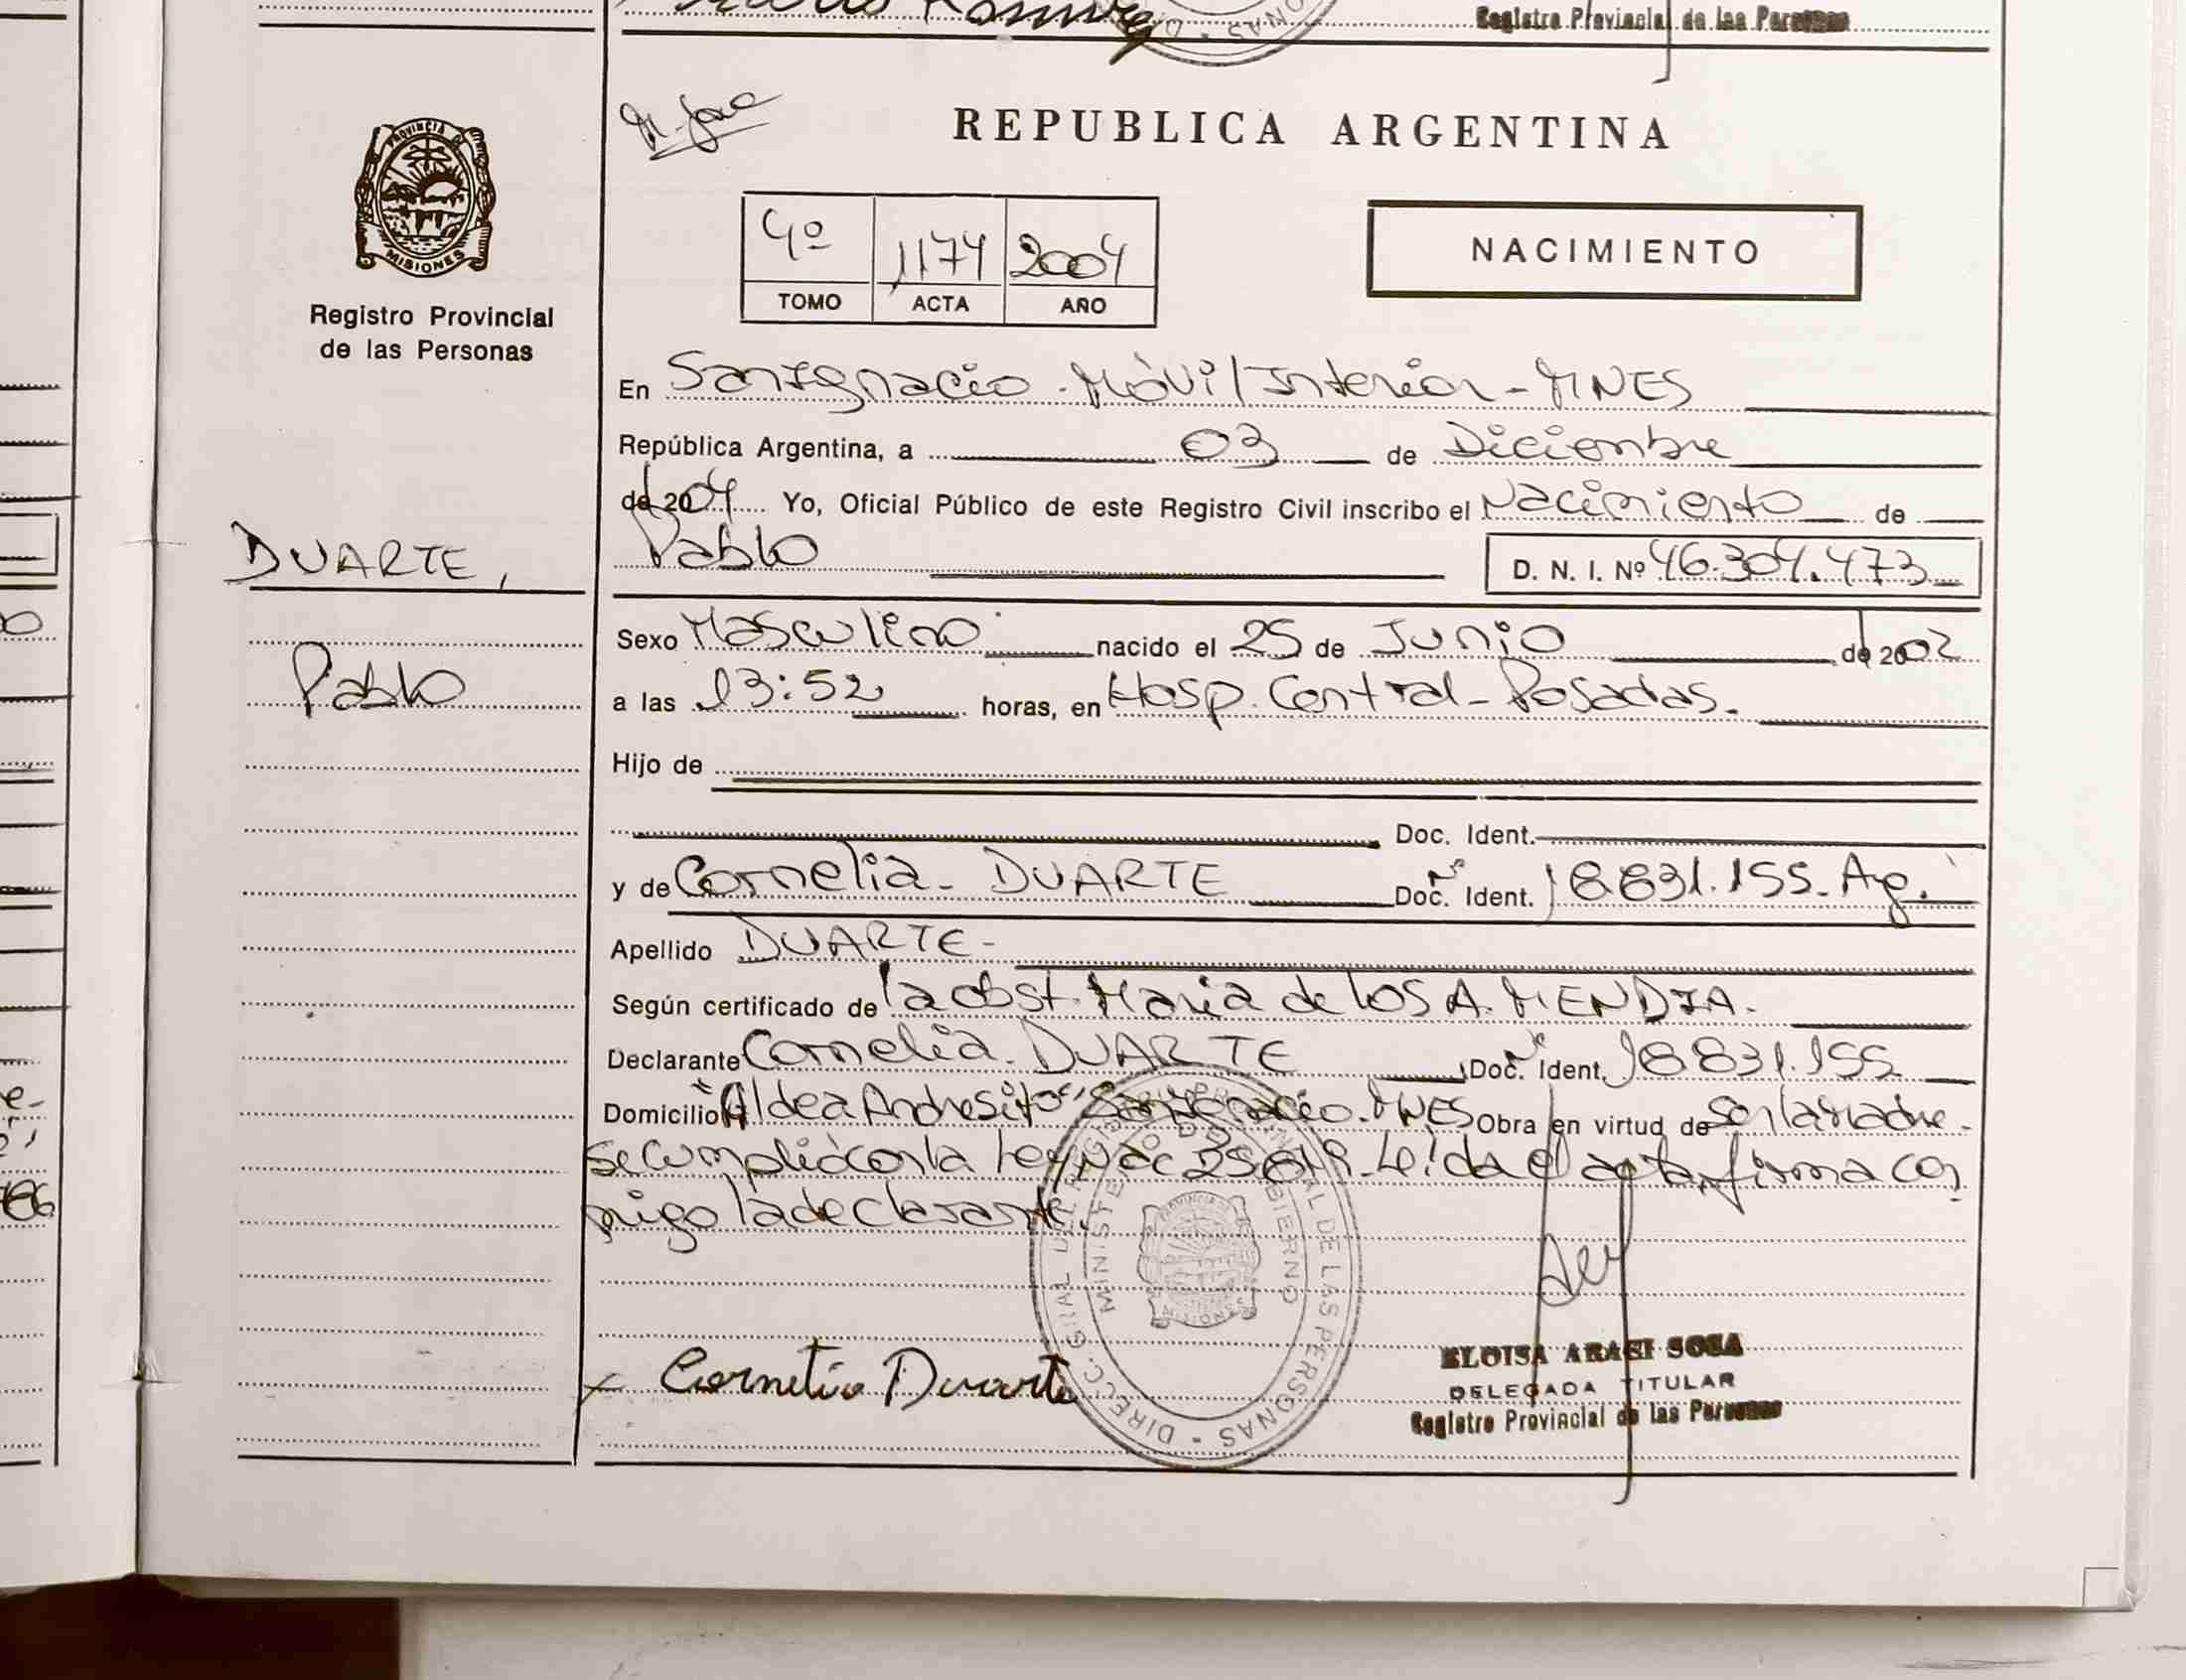 Registro Provincial de las Personas
PROVINCIA
MISIONES
Registro Provincial
de las Personas
REPUBLICA ARGENTINA
4º 1174 2004
TOMO ACTA AÑO
NACIMIENTO
En San Ignacio - Móvil Interior - MNES
República Argentina, a 03 de Diciembre
de 2004 Yo, Oficial Público de este Registro Civil inscribo el Nacimiento de
DUARTE,
Pablo
Pablo
D. N. I. Nº 46.304.473
Sexo Masculino nacido el 25 de Junio de 2002
a las 13:52 horas, en Hosp. Central - Posadas.
Hijo de
Doc. Ident.
y de Cornelia - DUARTE Doc. Nº Ident. 18.831.155 - Ag.
Apellido DUARTE -
Según certificado de la obst. Maria de los A. MENDIA.
Declarante Cornelia - DUARTE Doc. Nº Ident. 18831.155
Domicilio Aldea Andresito San Ignacio. MNES Obra en virtud de ser la Madre -
se cumplió con la Ley Nac Leida el acta, firma con
migo la declarante.
DIRECC. GRAL. DEL REGISTRO PROVINCIAL DE LAS PERSONAS
MINISTERIO DE GOBIERNO
Cornelia Duarte
ELOISA ARASI SOSA
DELEGADA TITULAR
Registro Provincial de las Personas